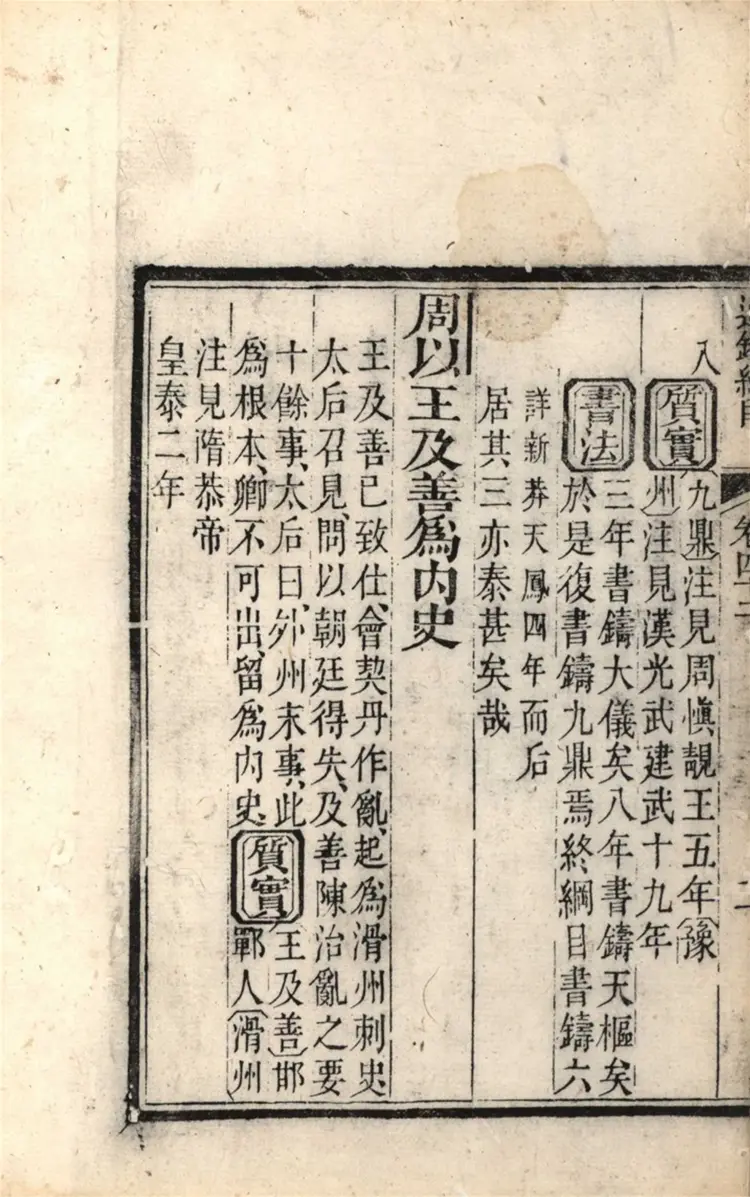 通鑑綱目 卷四十二 二
入
質實 九鼎注見周愼靚王五年豫
州注見漢光武建武十九年
書法 三年書鑄大儀矣八年書鑄天樞矣
於是復書鑄九鼎焉終綱目書鑄六
詳新莽天鳳四年而后
居其三亦泰甚矣哉
周以王及善爲内史
王及善已致仕、會契丹作亂、起爲滑州刺史、
太后召見、問以朝廷得失、及善陳治亂之要
十餘事、太后曰、外州末事、此
爲根本、卿不可出、留爲内史、
質實 王及善邯
鄲人滑州
注見隋恭帝
皇泰二年